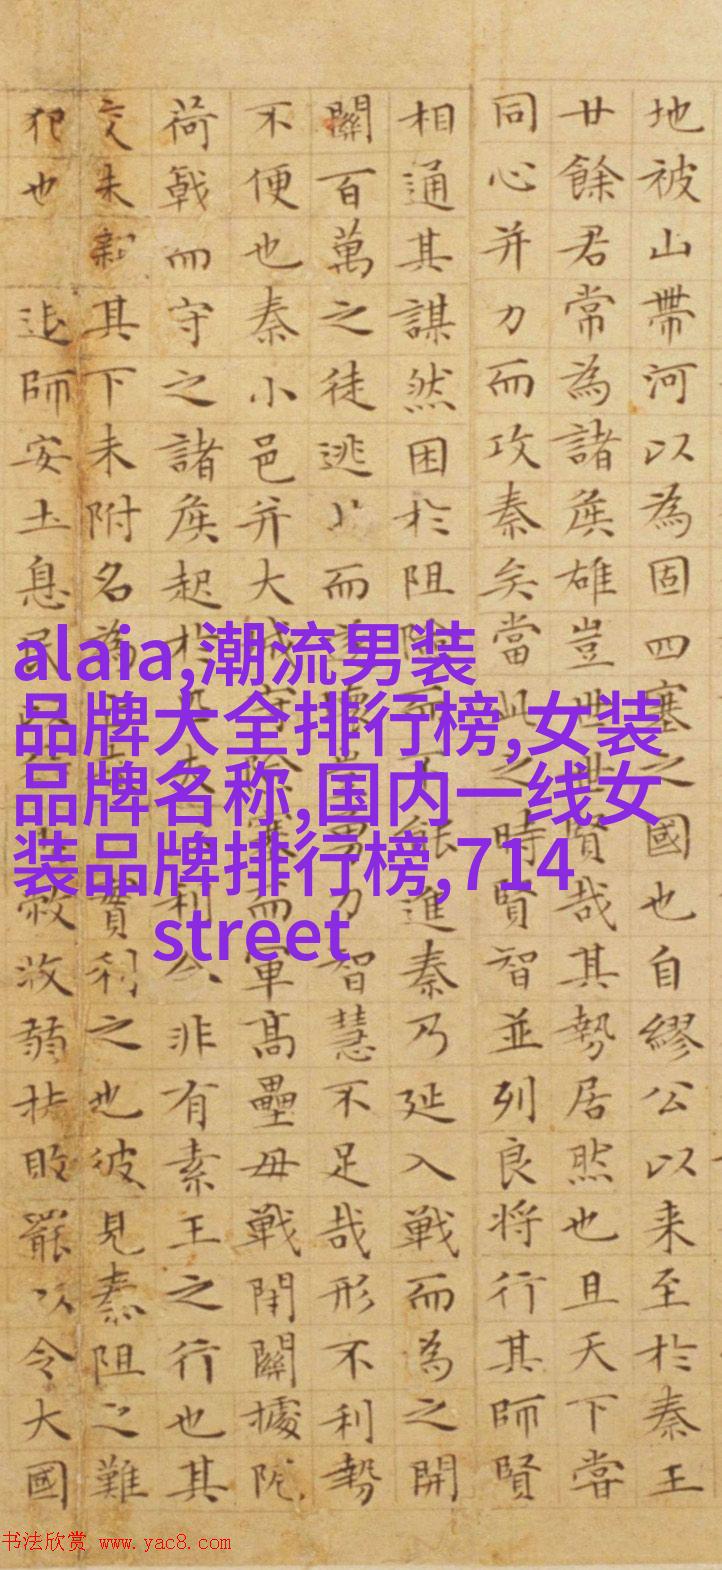 地被山帶河以為固四塞之國也自繆公以来至於秦王
廿餘君常為諸侯雄豈世世賢哉其勢居然也且天下甞
同心并力而攻秦矣當此之時賢智並列良将行其師賢
相通其謀然困於阻險而不能進秦乃延入戰而為之開
關百萬之徒逃而壞勇力智慧不足哉形不利勢
不便也秦小邑并大城守險塞而軍高壘毋戰閉關據阨
荷戟而守之諸侯起於利会非有素王之行也其
交未親其下未附名為實利之也彼見秦阻之難
犯也 退師安土息民敝收弱扶敗罷以令大國
alaia,潮流男装
品牌大全排行榜,女装
品牌名称,国内一线女
装品牌排行榜,714
street
书法欣赏 www.yac8.com